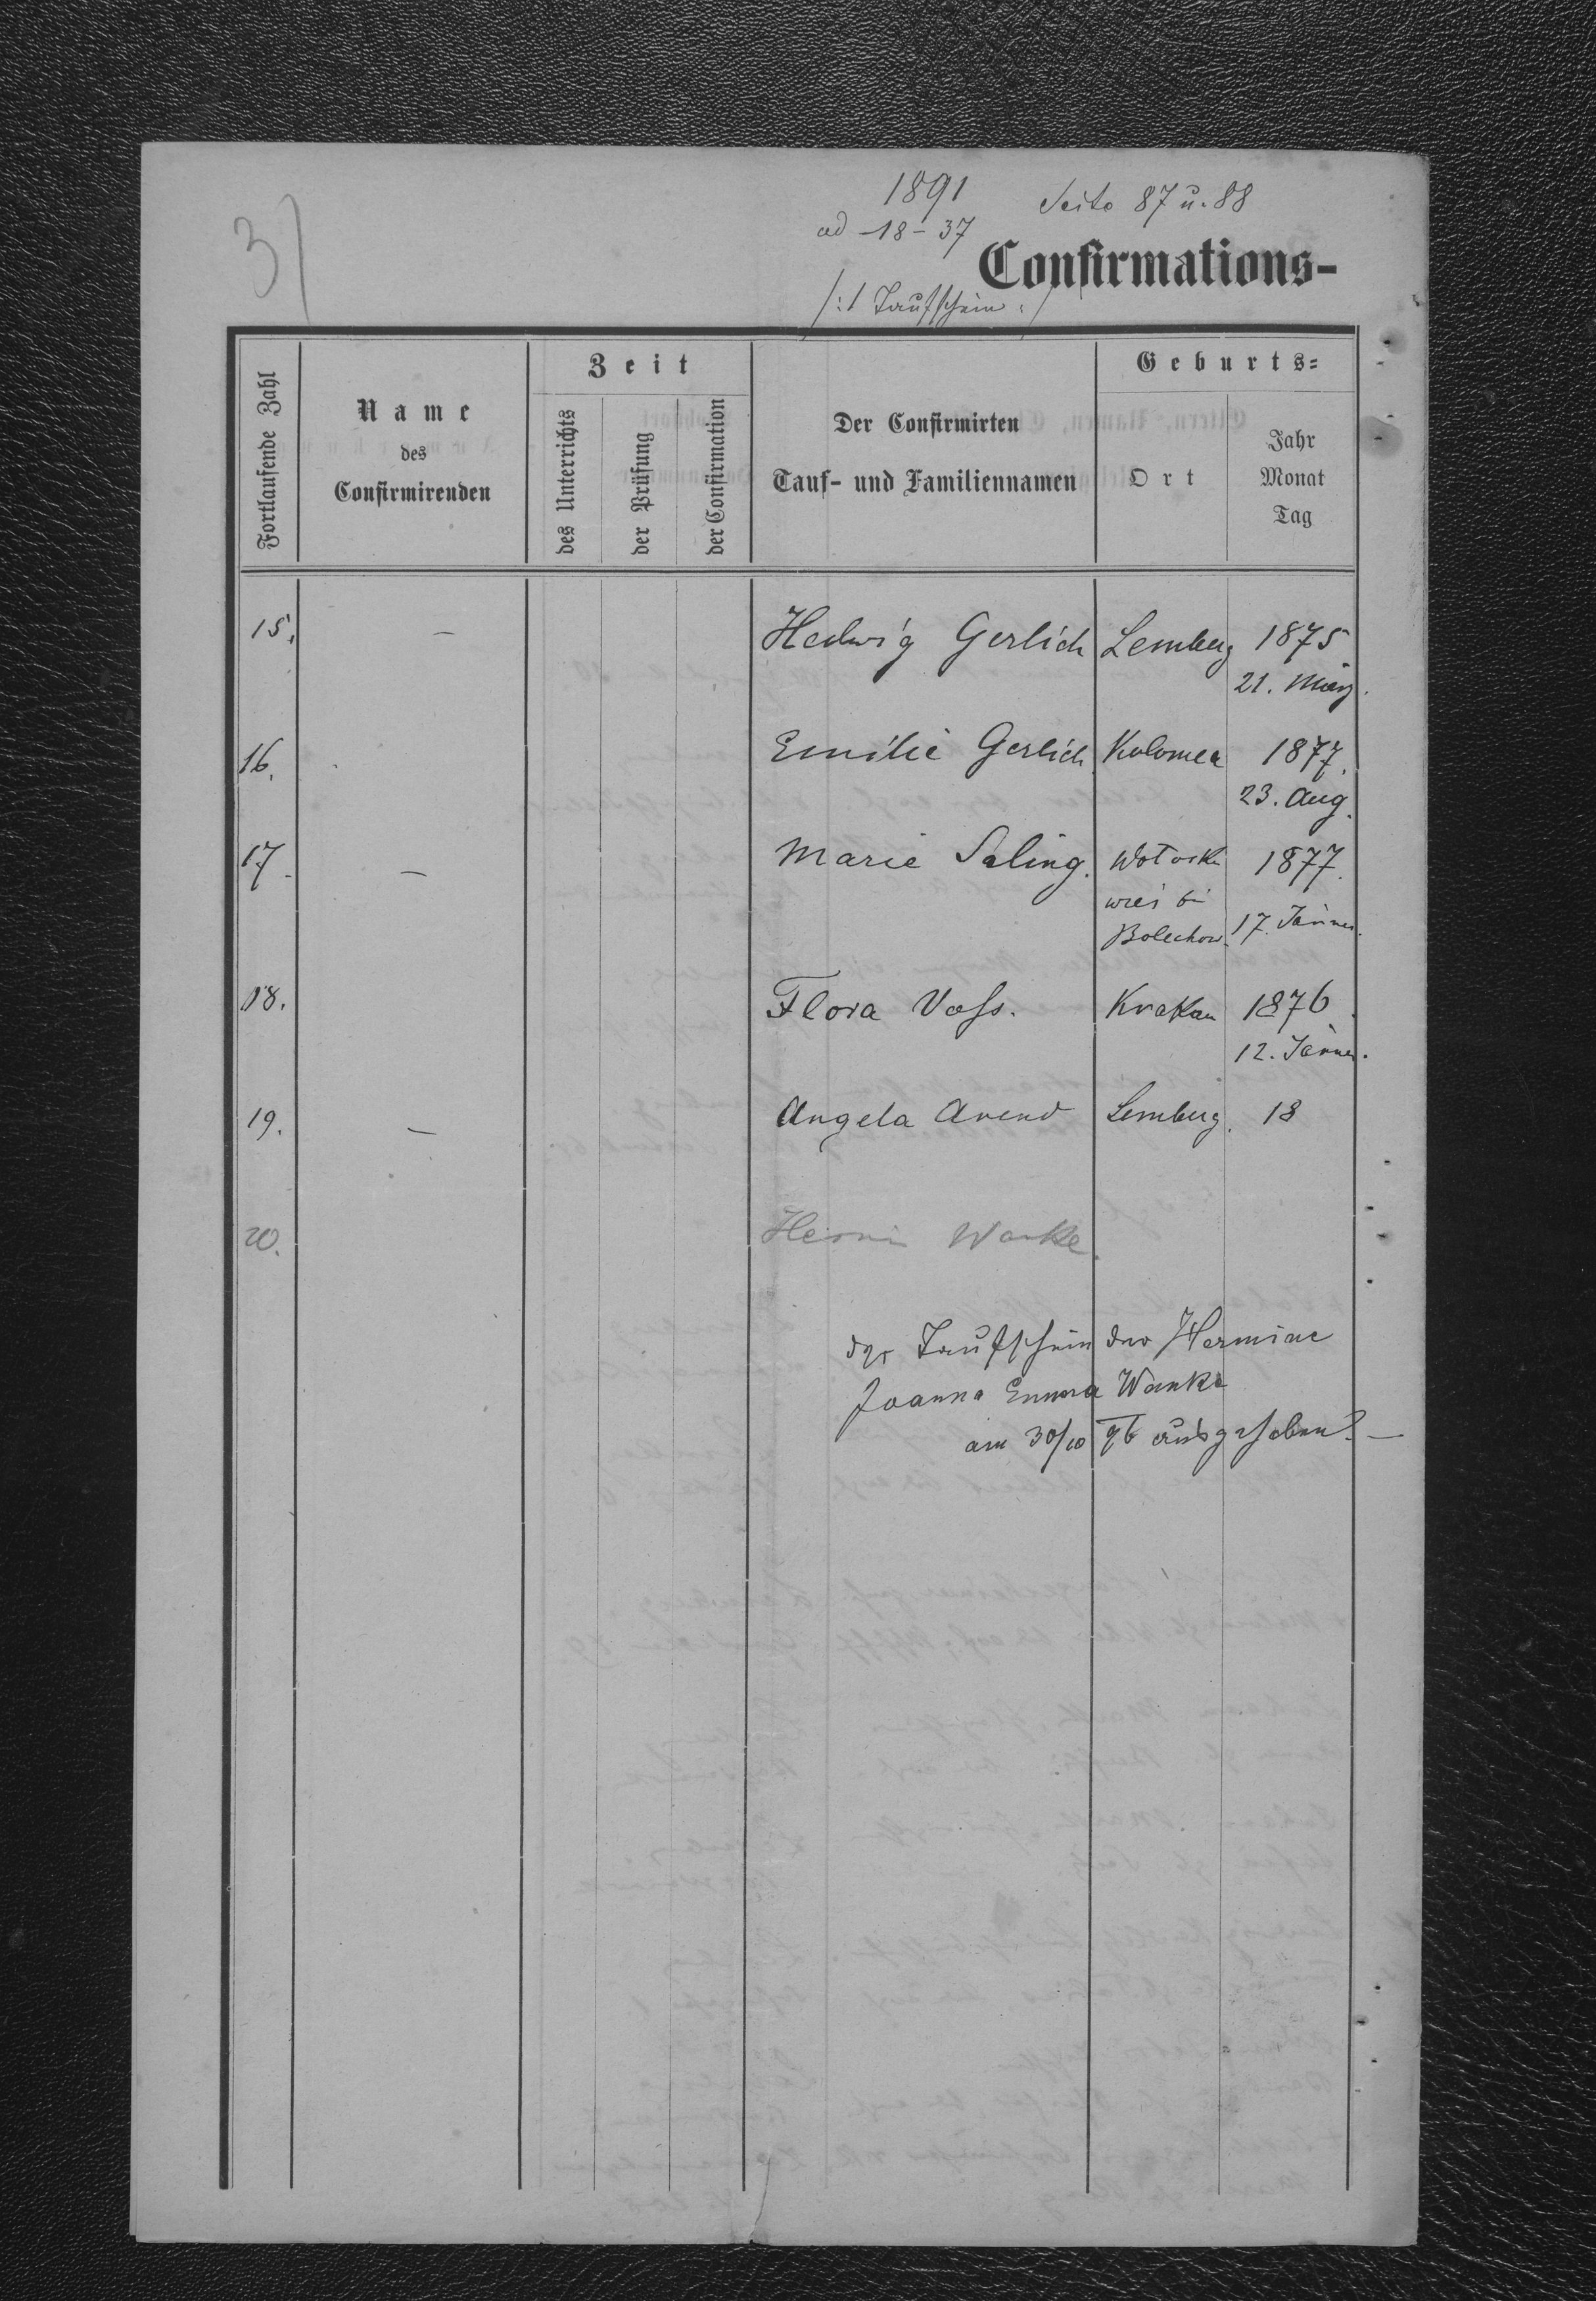 3)
1891
Seite 87 u. 88
ad 18-37
Confirmations-
/: 1 Taufschein :/
Fortlaufende Zahl
Name
des
Confirmirenden
Zeit
des Unterrichts
der Prüfung
der Confirmation
Der Confirmirten
Tauf- und Familiennamen
Geburts-
Ort
Jahr
Monat
Tag
15. — Hedwig Gerlich Lemberg 1875
21. März.
16. Emilie Gerlich Kolomea 1877.
23. Aug.
17. — Marie Saling. 1877.
bei
Bolechow. 17. Jänner.
18. Flora Voss. Krakau 1876
12. Jänner.
19. — Angela Arend Lemberg. 18
20. Wanke.
Taufschein der Hermine
Joanna Emma Wanke
am 30/10 96 ausgehoben. —